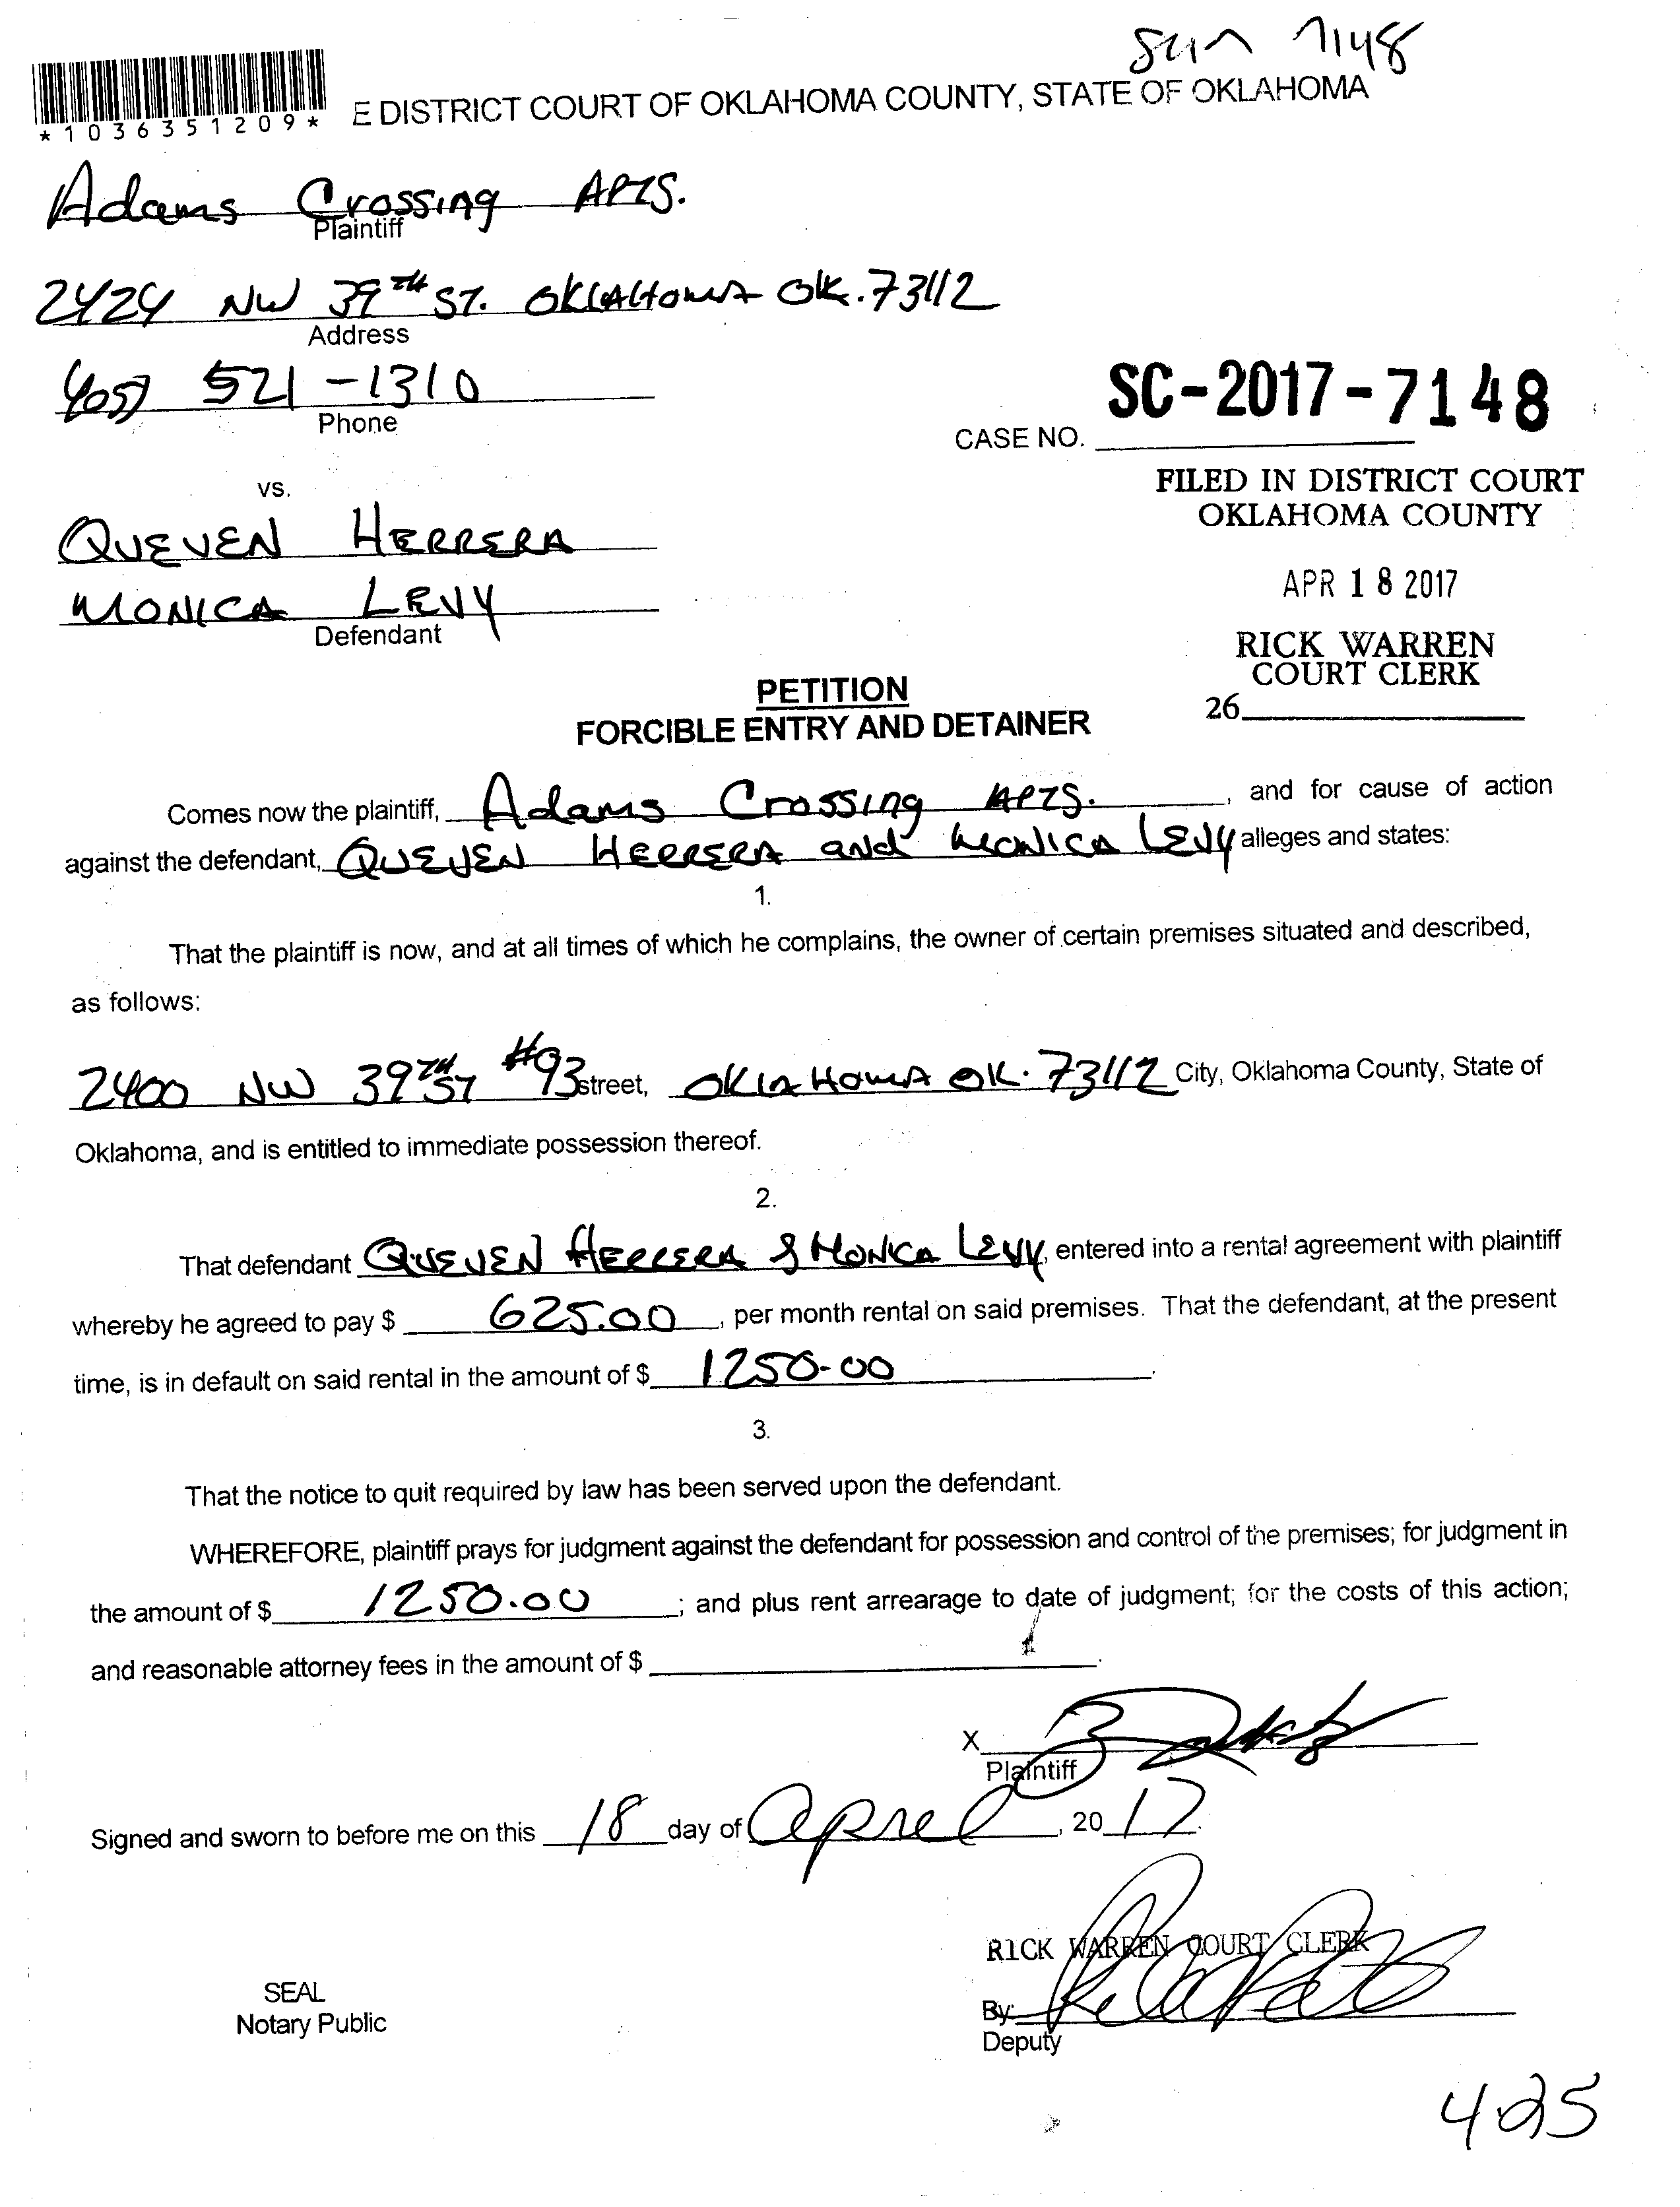 7148
*1036351209*
E DISTRICT COURT OF OKLAHOMA COUNTY, STATE OF OKLAHOMA
Adams Crossing APTS.
Plaintiff
2424 NW 39TH ST. OKLAHOMA OK. 73112
Address
405) 521-1310
Phone
SC-2017-7148
CASE NO.
vs.
FILED IN DISTRICT COURT
OKLAHOMA COUNTY
QUEVEN HERRERA
APR 18 2017
MONICA LEVY
Defendant
RICK WARREN
COURT CLERK
26
PETITION
FORCIBLE ENTRY AND DETAINER
Comes now the plaintiff, Adams Crossing APTS. , and for cause of action
against the defendant, QUEVEN HERRERA and MONICA LEVY alleges and states:
1.
That the plaintiff is now, and at all times of which he complains, the owner of certain premises situated and described,
as follows:
2400 NW 39TH ST #93 street, OKLAHOMA OK. 73112 City, Oklahoma County, State of
Oklahoma, and is entitled to immediate possession thereof.
2.
That defendant QUEVEN HERRERA & MONICA LEVY, entered into a rental agreement with plaintiff
whereby he agreed to pay $ 625.00 , per month rental on said premises. That the defendant, at the present
time, is in default on said rental in the amount of $ 1250-00 .
3.
That the notice to quit required by law has been served upon the defendant.
WHEREFORE, plaintiff prays for judgment against the defendant for possession and control of the premises; for judgment in
the amount of $ 1250.00 ; and plus rent arrearage to date of judgment; for the costs of this action;
and reasonable attorney fees in the amount of $ .
X
Plaintiff
Signed and sworn to before me on this 18 day of April , 2017.
RICK WARREN COURT CLERK
SEAL
Notary Public
By:
Deputy
425